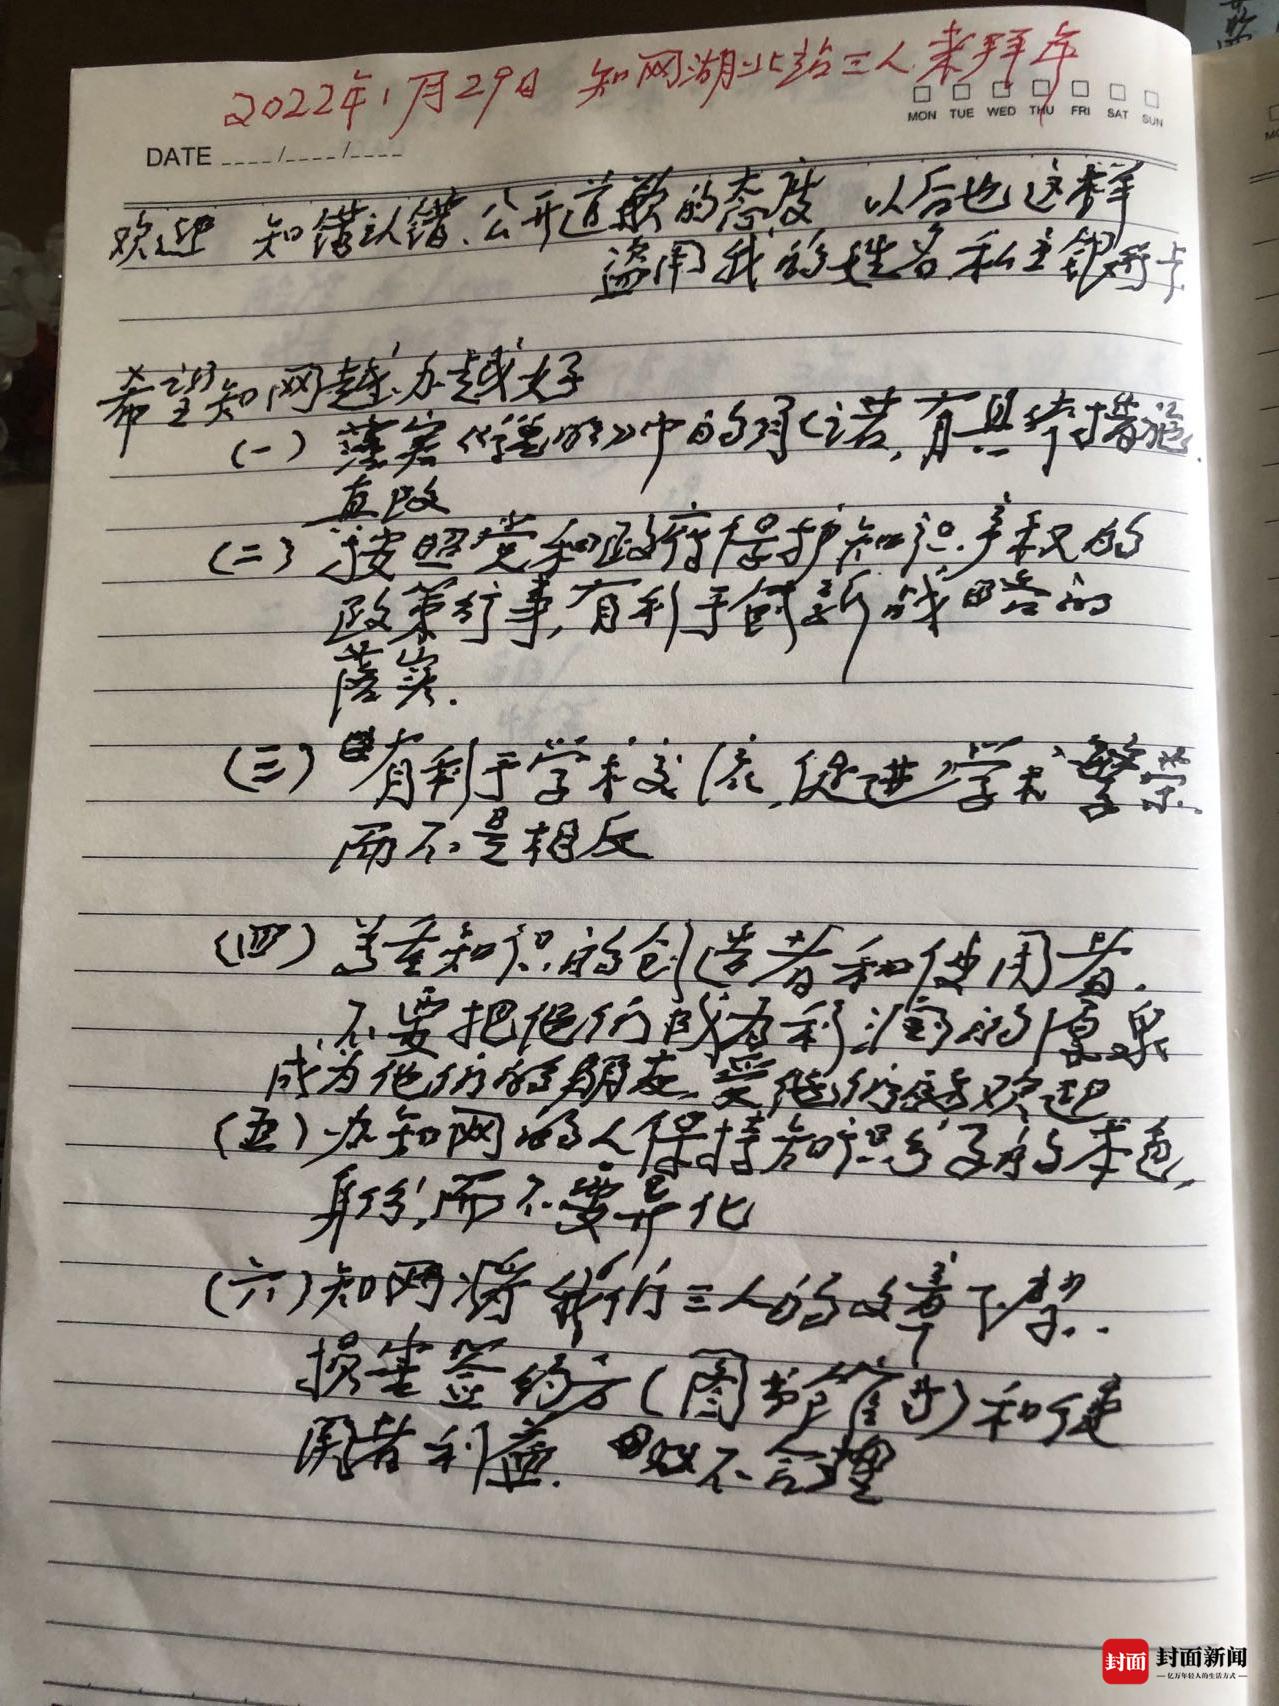 2022年1月29日 知网湖北站三人来拜年
MON TUE WED THU FRI SAT SUN
DATE ____/____/____
欢迎 知错认错、公开道歉的态度 以后也这样
盗用我的姓名 私立银行卡
希望知网越办越好
(一) 落实《说明》中的承诺,有具体措施.
真改
(二) 按照党和政府保护知识产权的
政策行事,有利于创新战略的
落实.
(三) 有利于学术交流,促进学术繁荣.
而不是相反
(四) 尊重知识的创造者和使用者.
不要把他们成为利润的源泉
成为他们的朋友,受他们欢迎
(五) 办知网的人保持知识分子的本色,
身份,而不要异化
(六) 知网将我们三人的文章下架..
损害签约方(图书馆等)和使
用者利益. 不合理
封面 封面新闻
亿万年轻人的生活方式